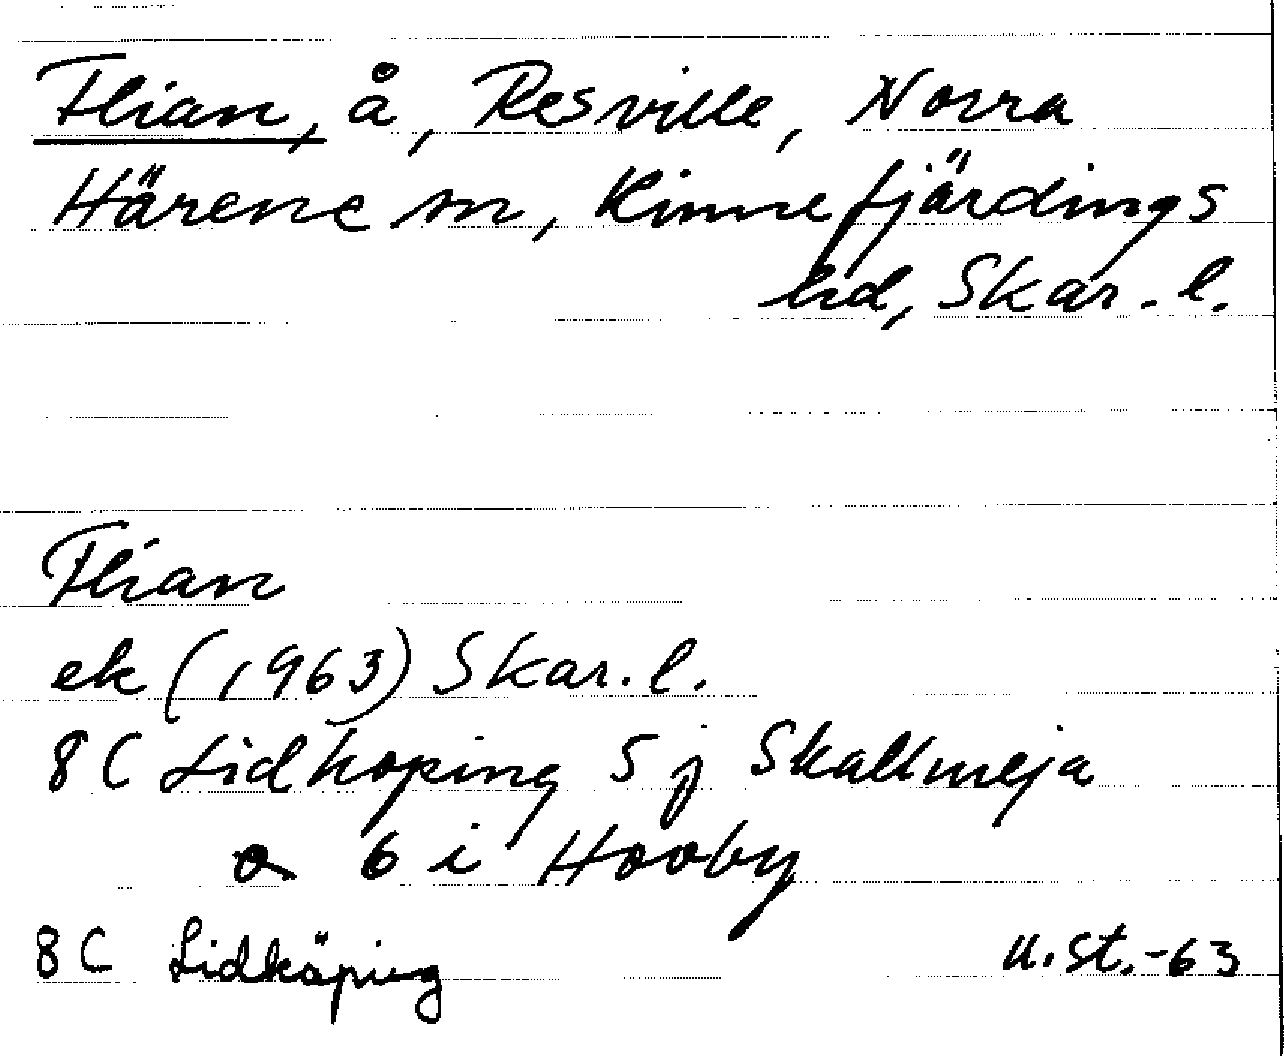 Flian, å, Resville, Norra
Härene sn, Kinnefjärdings
hd, Skar. l.
Flian
ek (1963) Skar. l.
8 C Lidköping 5 j Skallmeja
o 6 i Hovby
8 C Lidköping u. st. -63